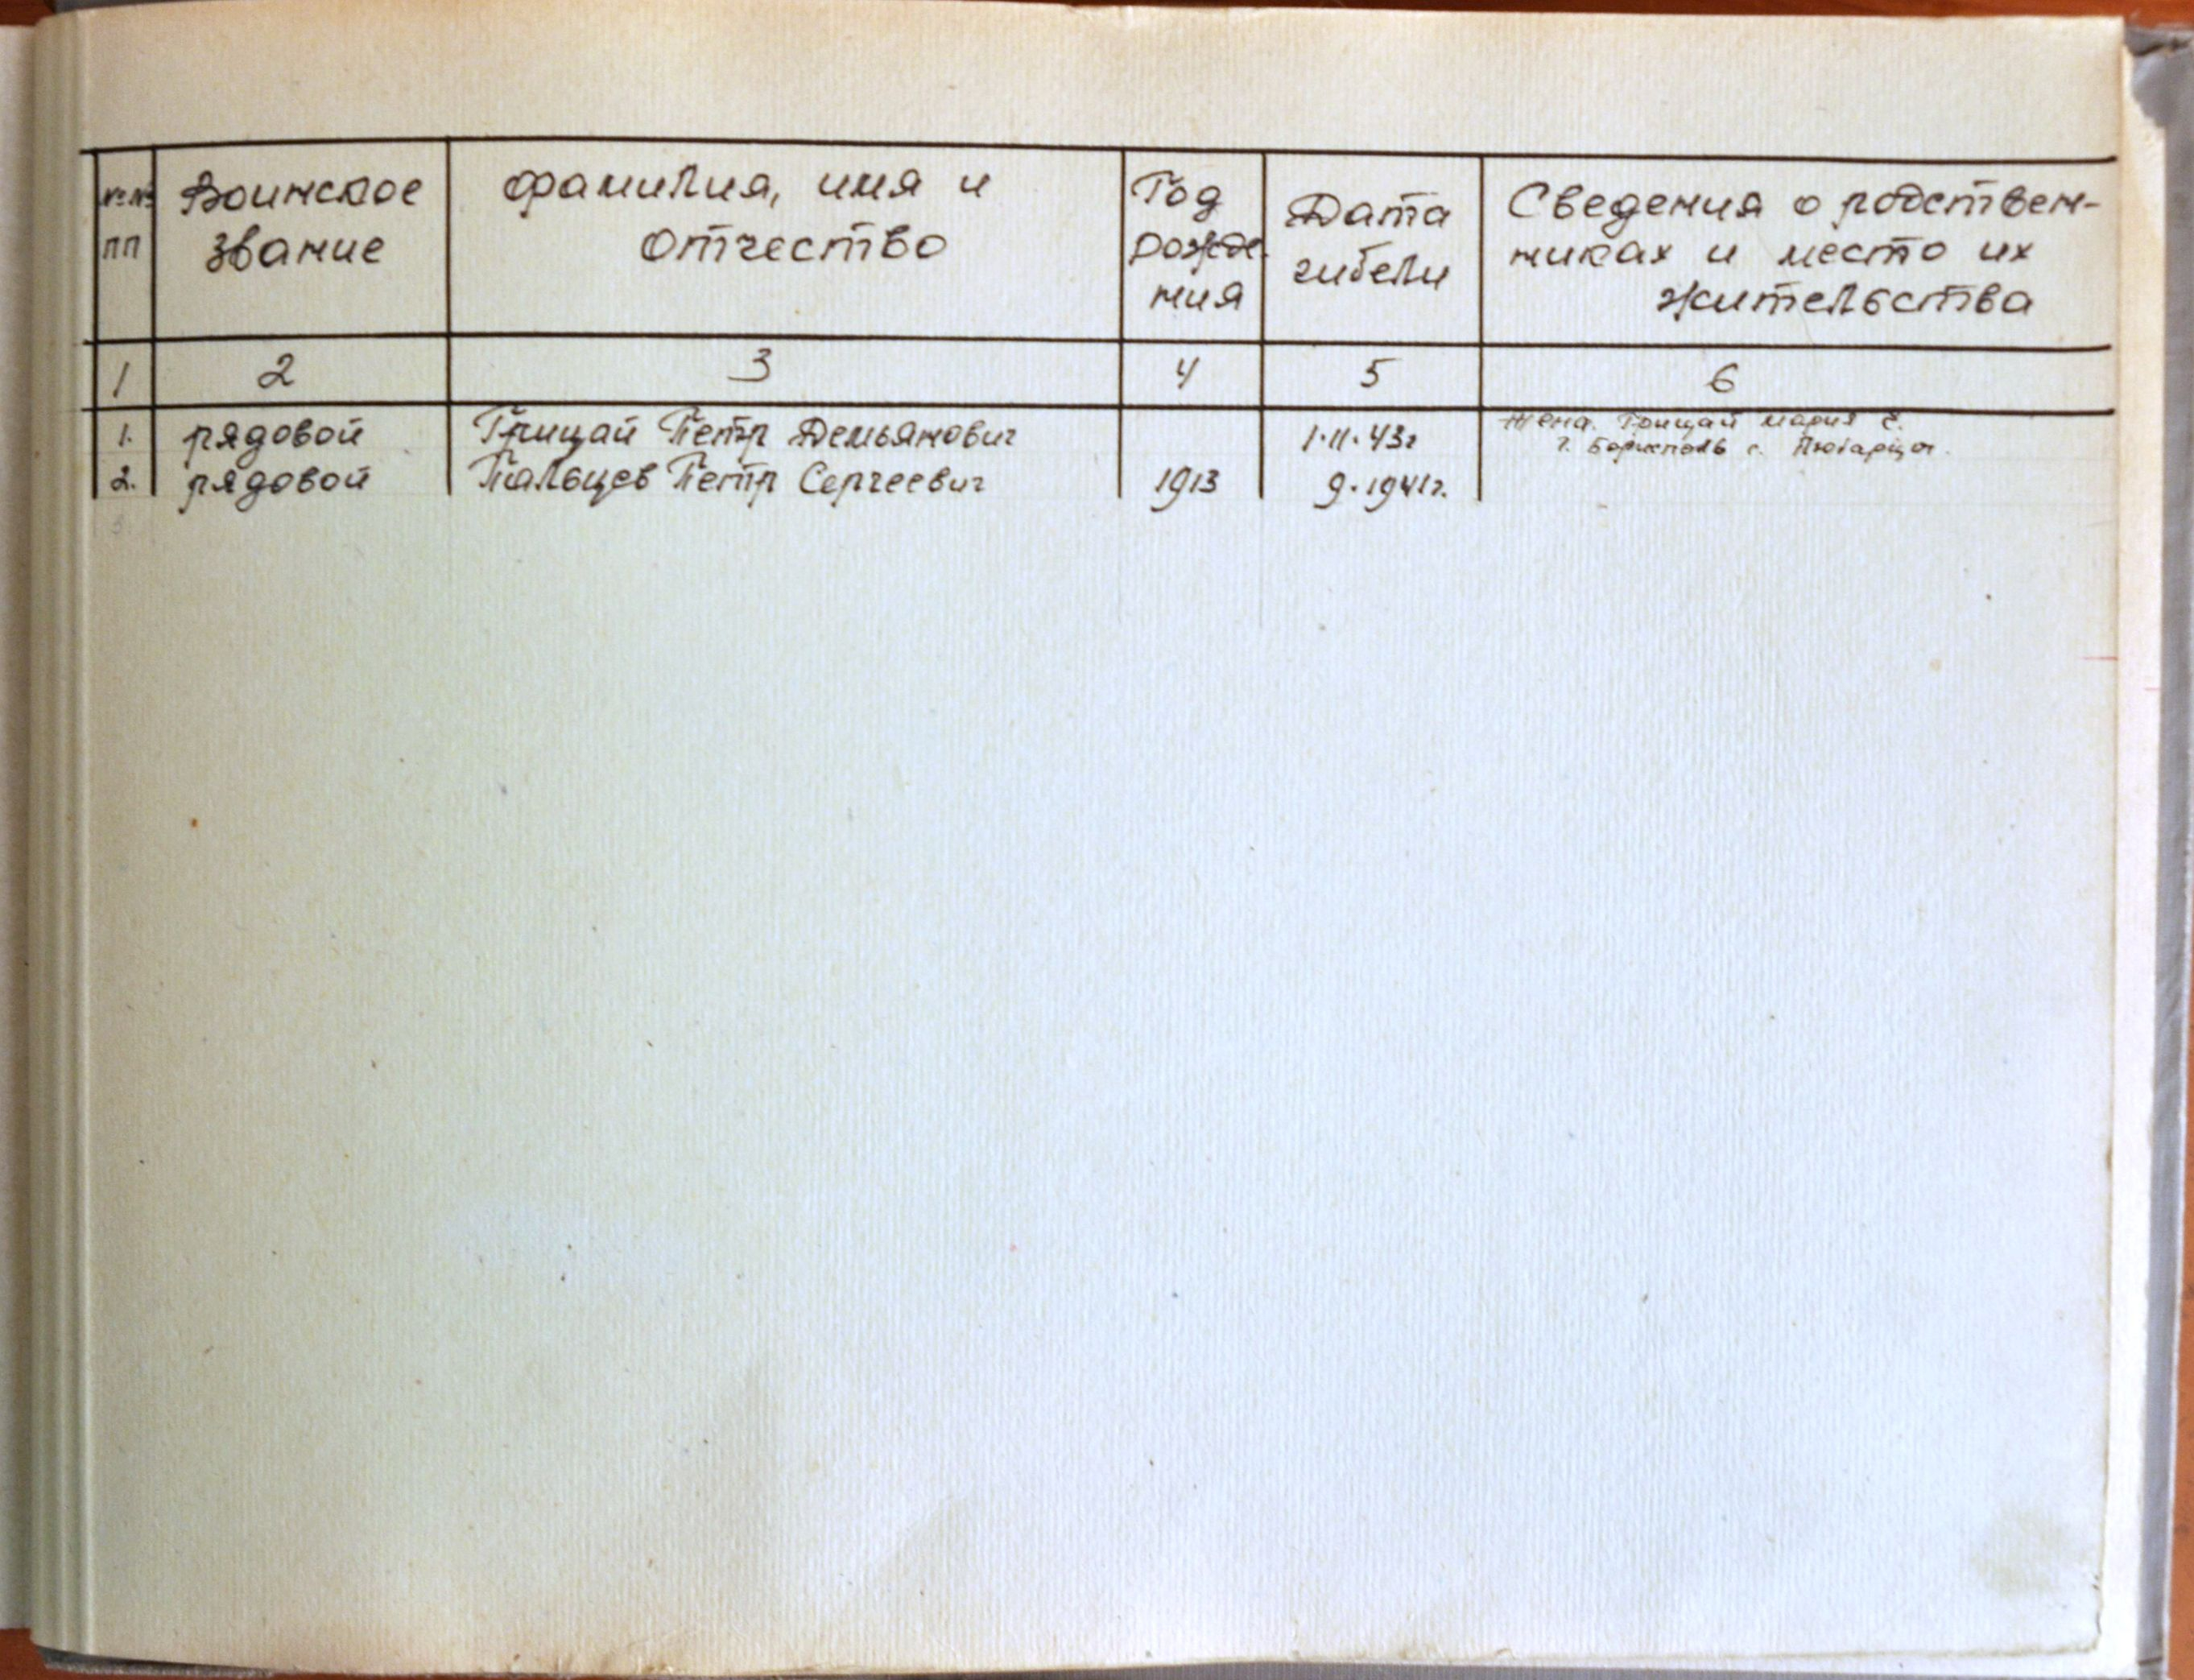 №№ пп Воинское звание Фамилия, имя и отчество Год рожде- ния Дата гибели Сведения о родствен- никах и место их жительства
1 2 3 4 5 6
1. рядовой Грицай Петр Демьянович 1.11.43г Жена. Грицай Мария
г. Борисполь с.
2. рядовой Пальцев Петр Сергеевич 1913 9.1941г.
3.